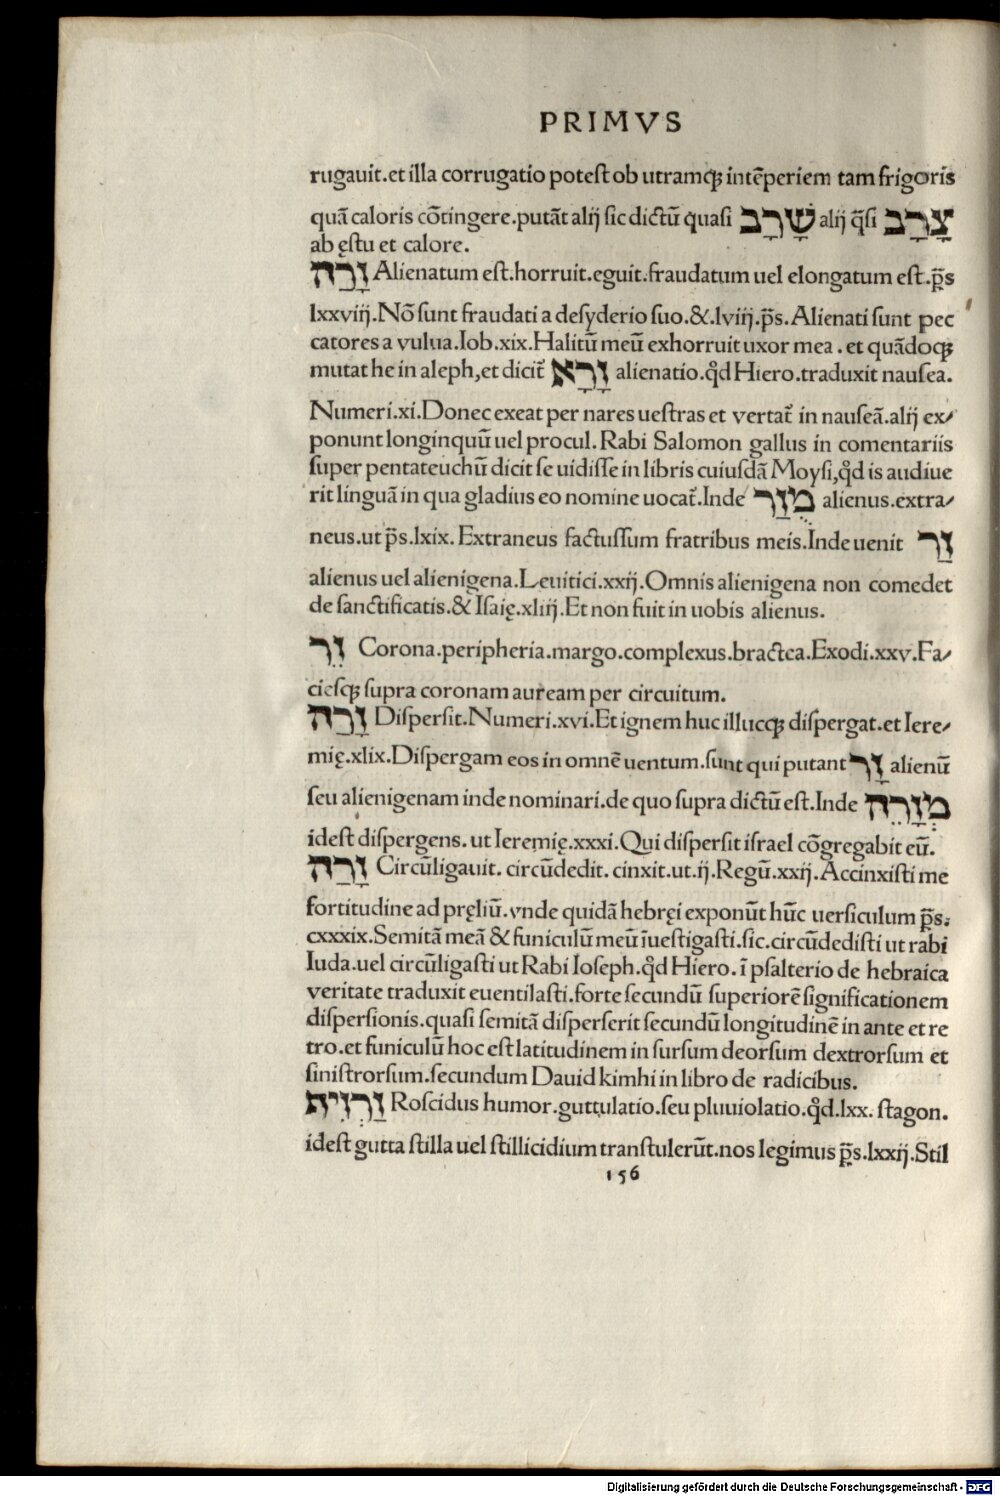 PRIMVS
rugauit.et illa corrugatio poteſt ob utramqꝫ intēperiem tam frigoris
quā caloris cōtingere.putāt alij ſic dictū quaſi שָׁרָב alij q̄ſi צָרָב
ab ęſtu et calore.
זָרָה Alienatum eſt.horruit.eguit.fraudatum uel elongatum eſt.p̄s
lxxviij.Nō ſunt fraudati a deſyderio ſuo.&.lviij.p̄s.Alienati ſunt pec
catores a vulua.Iob.xix.Halitū meū exhorruit uxor mea . et quādoqꝫ
mutat he in aleph,et dicit̄ זָרָא alienatio.qd̄ Hiero.traduxit nauſea.
Numeri.xi.Donec exeat per nares ueſtras et vertat̄ in nauſeā.alij ex⸗
ponunt longinquū uel procul.Rabi Salomon gallus in comentariis
ſuper pentateuchū dicit ſe uidiſſe in libris cuiuſdā Moyſi,qd̄ is audiue
rit linguā in qua gladius eo nomine uocat̄.Inde מֻזָר alienus.extra⸗
neus.ut p̄s.lxix.Extraneus factuſſum fratribus meis.Inde uenit זָר
alienus uel alienigena.Leuitici.xxij.Omnis alienigena non comedet
de ſanctificatis.& Iſaię.xliij.Et non fuit in uobis alienus.
זֵר Corona.peripheria.margo.complexus.bractea.Exodi.xxv.Fa⸗
cieſqꝫ ſupra coronam auream per circuitum.
זָרָה Diſperſit.Numeri.xvi.Et ignem huc illucqꝫ diſpergat.et Iere⸗
mię.xlix.Diſpergam eos in omnē uentum.ſunt qui putant זָר alienū
ſeu alienigenam inde nominari.de quo ſupra dictū eſt.Inde מְזָרֵה
ideſt diſpergens. ut Ieremię.xxxi.Qui diſperſit iſrael cōgregabit eū.
זָרָה Circūligauit. circūdedit. cinxit.ut.ij.Regū.xxij.Accinxiſti me
fortitudine ad pręliū.vnde quidā hebręi exponūt hūc uerſiculum p̄s.
cxxxix.Semitā meā & funiculū meū īueſtigaſti.ſic.circūdediſti ut rabi
Iuda.uel circūligaſti ut Rabi Ioſeph.qd̄ Hiero. ī pſalterio de hebraica
veritate traduxit euentilaſti.forte ſecundū ſuperiorē ſignificationem
diſperſionis.quaſi ſemitā diſperſerit ſecundū longitudinē in ante et re
tro.et funiculū hoc eſt latitudinem in ſurſum deorſum dextrorſum et
ſiniſtrorſum.ſecundum Dauid kimhi in libro de radicibus.
זַרְזִית Roſcidus humor.guttulatio.ſeu pluuiolatio.qd̄.lxx. ſtagon.
ideſt gutta ſtilla uel ſtillicidium tranſtulerūt.nos legimus p̄s.lxxij.Stil
156
Digitalisierung gefördert durch die Deutsche Forschungsgemeinschaft - DFG